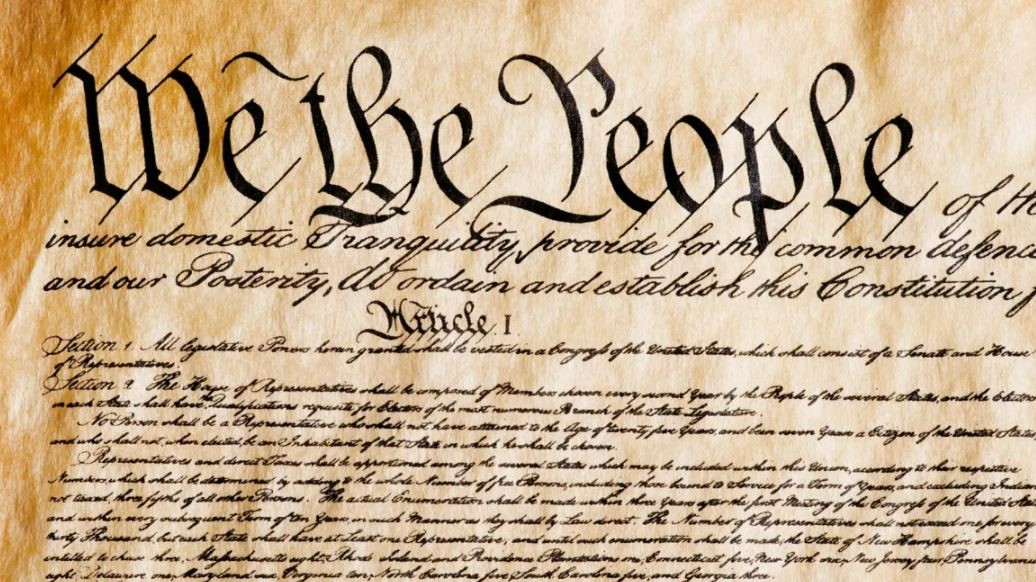 We the People of th
insure domestic Tranquility, provide for the common defence
and our Posterity, do ordain and establish this Constitution f
Article. I.
Section 1. All legislative Powers herein granted shall be vested in a Congress of the United States, which shall consist of a Senate and House
of Representatives.
Section 2. The House of Representatives shall be composed of Members chosen every second Year by the People of the several States, and the Electors
in each State shall have the Qualifications requisite for Electors of the most numerous Branch of the State Legislature.
No Person shall be a Representative who shall not have attained to the Age of twenty five Years, and been seven Years a Citizen of the United States
and who shall not, when elected, be an Inhabitant of that State in which he shall be chosen.
Representatives and direct Taxes shall be apportioned among the several States which may be included within this Union, according to their respective
Numbers, which shall be determined by adding to the whole Number of free Persons, including those bound to Service for a Term of Years, and excluding Indians
not taxed, three fifths of all other Persons. The actual Enumeration shall be made within three Years after the first Meeting of the Congress of the United Stat
and within every subsequent Term of ten Years, in such Manner as they shall by Law direct. The Number of Representatives shall not exceed one for every
thirty Thousand, but each State shall have at Least one Representative; and until such enumeration shall be made, the State of New Hampshire shall be
entitled to chuse three, Massachusetts eight, Rhode Island and Providence Plantations one, Connecticut five, New York six, New Jersey four, Pennsylvania
eight, Delaware one, Maryland six, Virginia ten, North Carolina five, South Carolina five, and Georgia three.